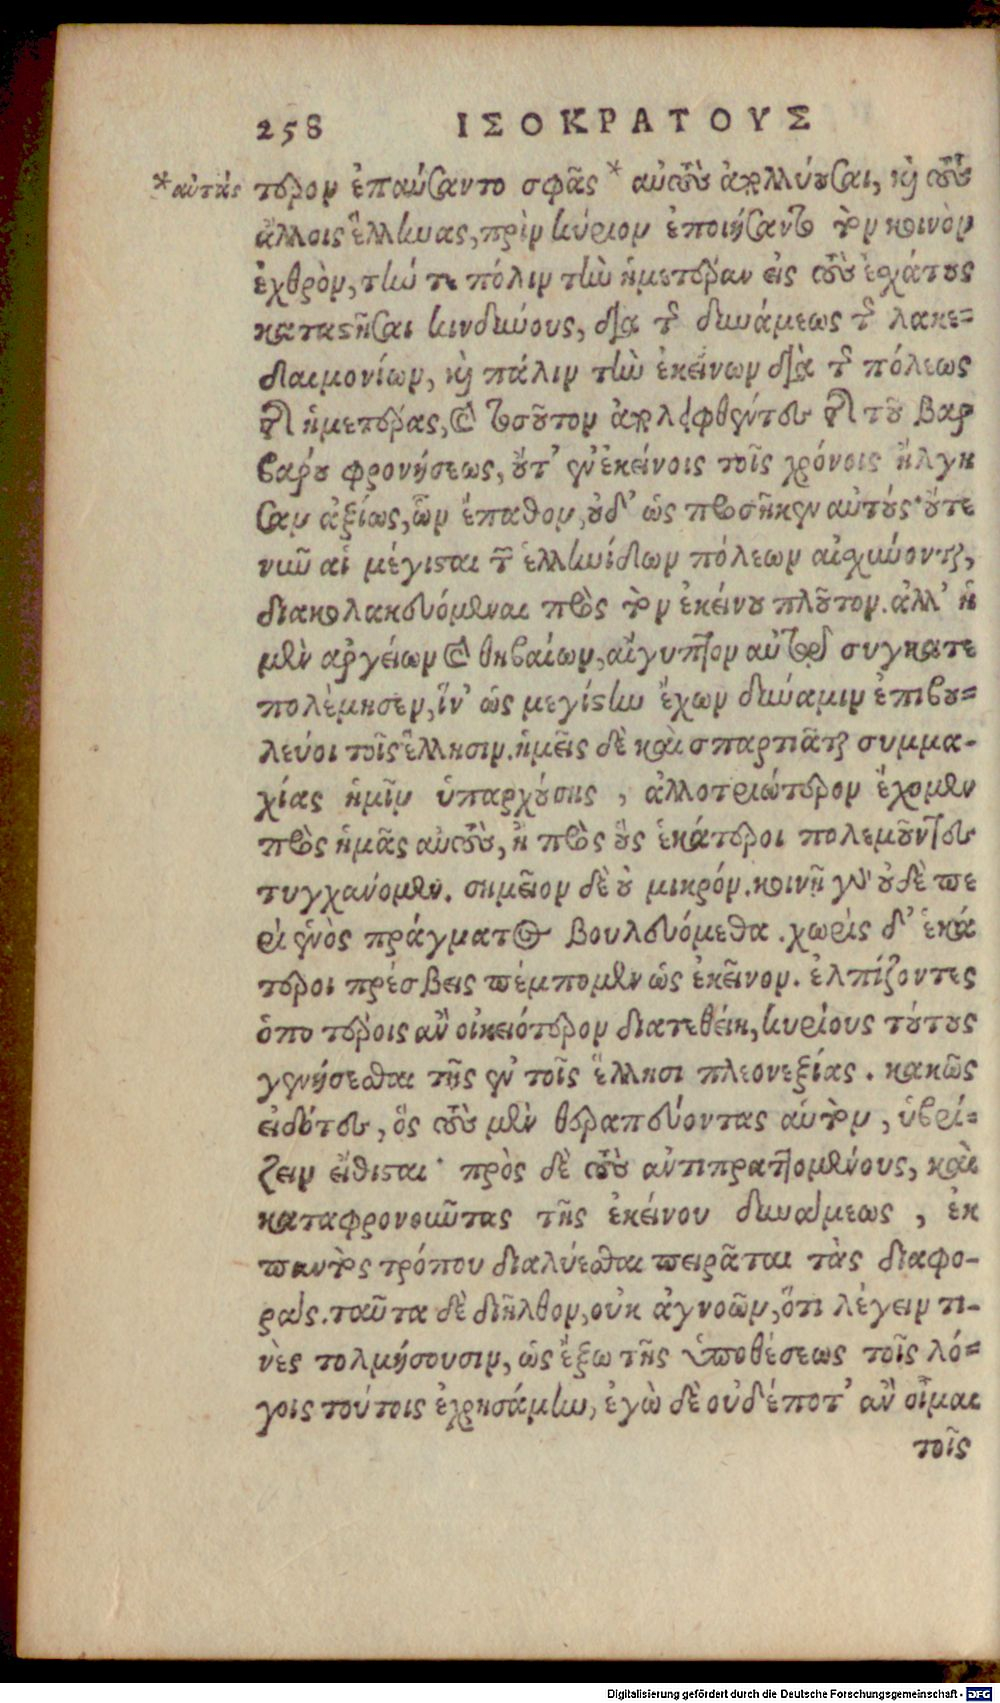 258 ΙΣΟΚΡΑΤΟΥΣ
*αὐτάς τερον ἐπαύσαντο σφᾶς * αὐτοὺς ἀπολλύουσαι, καὶ τοὺς
ἄλλους ἕλληνας, πρὶν κύριον ἐποιήσαντο τὸν κοινὸν
ἐχθρὸν, τήν τε πόλιν τὴν ἡμετέραν εἰς τοὺς ἐσχάτους
καταστῆσαι κινδύνους, διὰ τῆς δυνάμεως τῆς λακε=
δαιμονίων, καὶ πάλιν τὴν ἐκείνων διὰ τῆς πόλεως
τῆς ἡμετέρας, καὶ τοσοῦτον ἀπολειφθέντες τῆς τοῦ βαρ
βάρου φρονήσεως, οὔτ' ἐν ἐκείνοις τοῖς χρόνοις ἤλγη
σαν ἀξίως, ὧν ἔπαθον, οὐδ' ὡς προσῆκεν αὐτούς· οὔτε
νῦν αἱ μέγισται τῶν ἑλληνίδων πόλεων αἰσχύνονται,
διακολακευόμεναι πρὸς τὸν ἐκείνου πλοῦτον. ἀλλ' ἡ
μὲν ἀργείων καὶ θηβαίων, αἴγυπτον αὐτῷ συγκατε
πολέμησεν, ἵν' ὡς μεγίστην ἔχων δύναμιν ἐπιβου=
λεύοι τοῖς ἕλλησιν. ἡμεῖς δὲ καὶ σπαρτιᾶται συμμα-
χίας ἡμῖν ὑπαρχούσης, ἀλλοτριώτερον ἔχομεν
πρὸς ἡμᾶς αὐτοὺς, ἢ πρὸς οὓς ἑκάτεροι πολεμοῦντες
τυγχάνομεν. σημεῖον δὲ οὐ μικρόν. κοινῇ γὰρ οὐδὲ πε
ρὶ ἑνὸς πράγματος βουλευόμεθα. χωρὶς δ' ἑκά
τεροι πρέσβεις πέμπομεν ὡς ἐκεῖνον. ἐλπίζοντες
ὁποτέροις ἂν οἰκειότερον διατεθείη, κυρίους τούτους
γενήσεσθαι τῆς ἐν τοῖς ἕλλησι πλεονεξίας. κακῶς
εἰδότες, ὃς τοὺς μὲν θεραπεύοντας αὑτὸν, ὑβρί=
ζειν εἴθισται· πρὸς δὲ τοὺς ἀντιπραττομένους, καὶ
καταφρονοῦντας τῆς ἐκείνου δυνάμεως, ἐκ
παντὸς τρόπου διαλύεσθαι πειρᾶται τὰς διαφο-
ράς. ταῦτα δὲ διῆλθον, οὐκ ἀγνοῶν, ὅτι λέγειν τι-
νὲς τολμήσουσιν, ὡς ἔξω τῆς ὑποθέσεως τοῖς λό=
γοις τούτοις ἐχρησάμην, ἐγὼ δὲ οὐδέποτ' ἂν οἶμαι
τοῖς
Digitalisierung gefördert durch die Deutsche Forschungsgemeinschaft - DFG